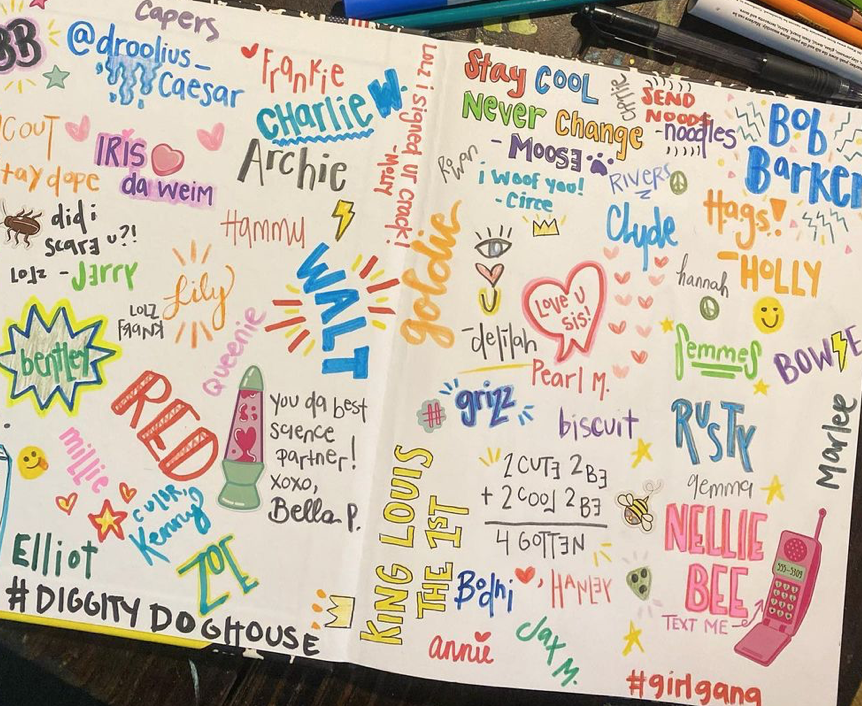 Capers
BB
@droolius_
Caesar
Frankie
CHARLIE W.
Archie
IRIS
da weim
stay dope
did i
scare u?!
LOLZ -JERRY
Hammy
Lily
LOLZ
WALT
Queenie
bentley
RED
millie
You da best
science
partner!
xoxo,
Bella P.
COLOR,
Kenny
ZOE
Elliot
#DIGGITYDOGHOUSE
LOLZ i signed ur crack!
-Molly
goldie
Stay COOL
Never Change
- MOOSE
Charlie
SEND
NOODS
-noodles
BOB
Barker
Rowan
i woof you!
-Circe
RIVERS
Clyde
Hags!
-HOLLY
hannah
-delilah
Love u
sis!
Pearl M.
Semmes
BOWIE
#
grizz
biscuit
RUSTY
Marlee
gemma
2CUTE 2BE
+ 2COOL 2BE
4 GOTTEN
KING LOUIS
THE 1ST
Bodhi
HANLEY
NELLIE
BEE
TEXT ME
555-5309
annie
Jax M.
#girlgang